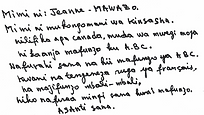 Mimi ni: Jeanne - MAWAZO.
Mimi ni mukongomani wa Kinshasa.
nilifika apa canada, muda wa mwezi moja
ni kaanja mafunzo ku A.B.C.
Nafurahi sana na hii mafunzo ya A.B.C.
kwani na tengeneza ruga ya français,
na majifunzo mbali-mbali,
niko nafuraa mingi sana kwal mafunzo.
ASANTI Sana.